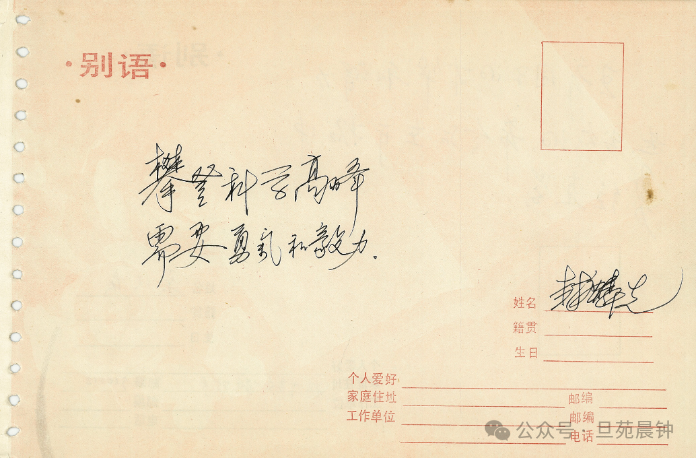 ·别语·
攀登科学高峰
需要勇气和毅力.
姓名
籍贯
生日
个人爱好
家庭住址 邮编
工作单位 邮编
电话
公众号·旦苑晨钟